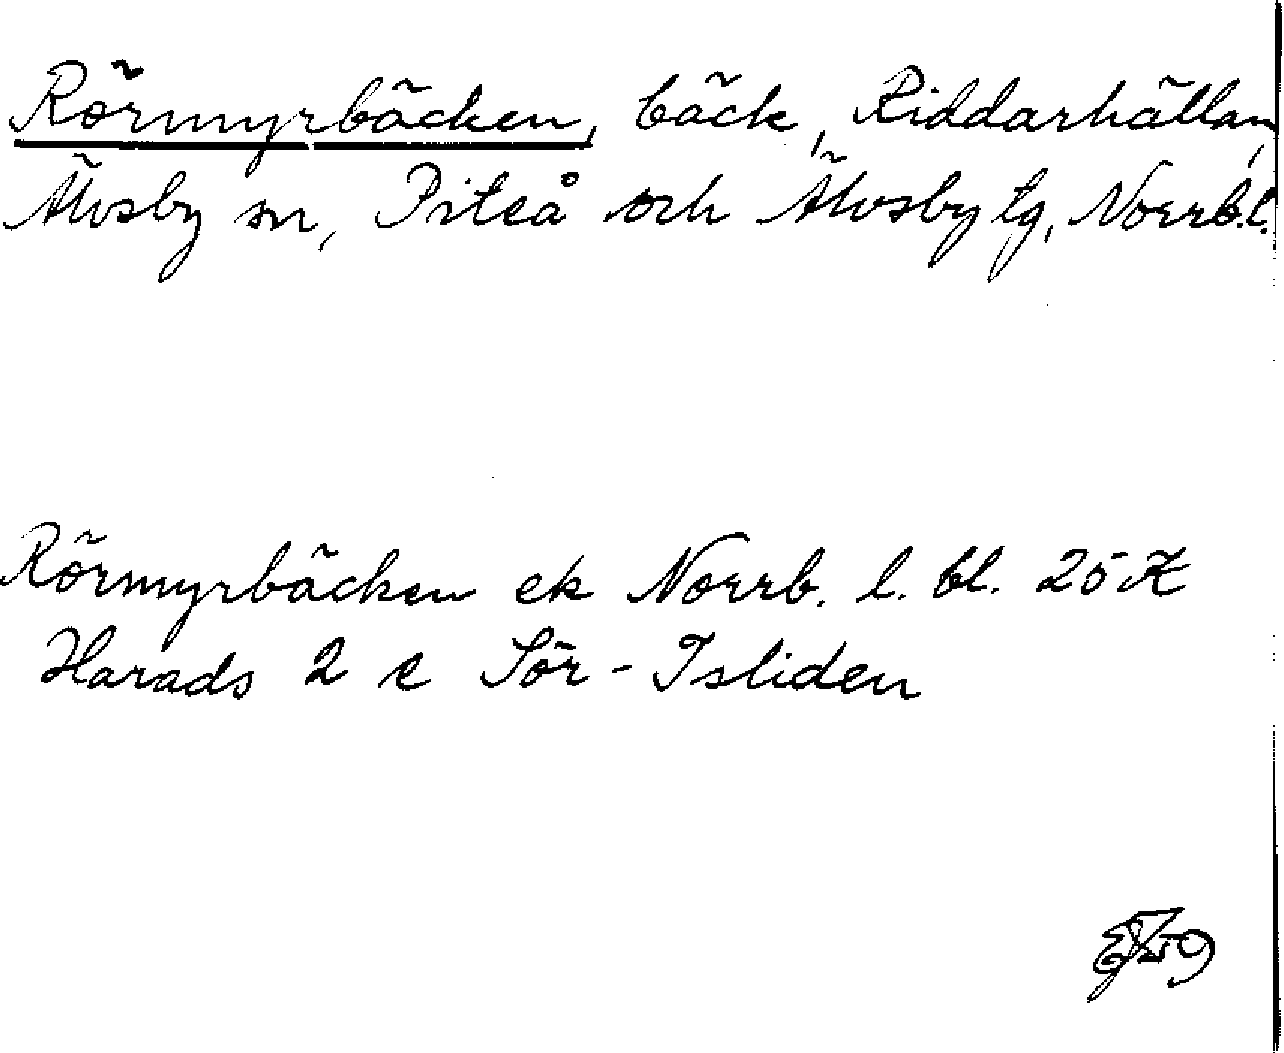 Rörmyrbäcken, bäck, Riddarhällan,
Älvsby sn, Piteå och Älvsby tg, Norrb.l.
Rörmyrbäcken ek Norrb. l. bl. 25 K
Harads 2 e Sör-Isliden